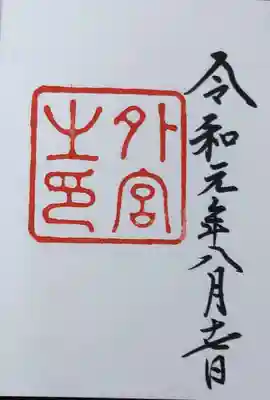 令和元年八月十七日
外宮
之印